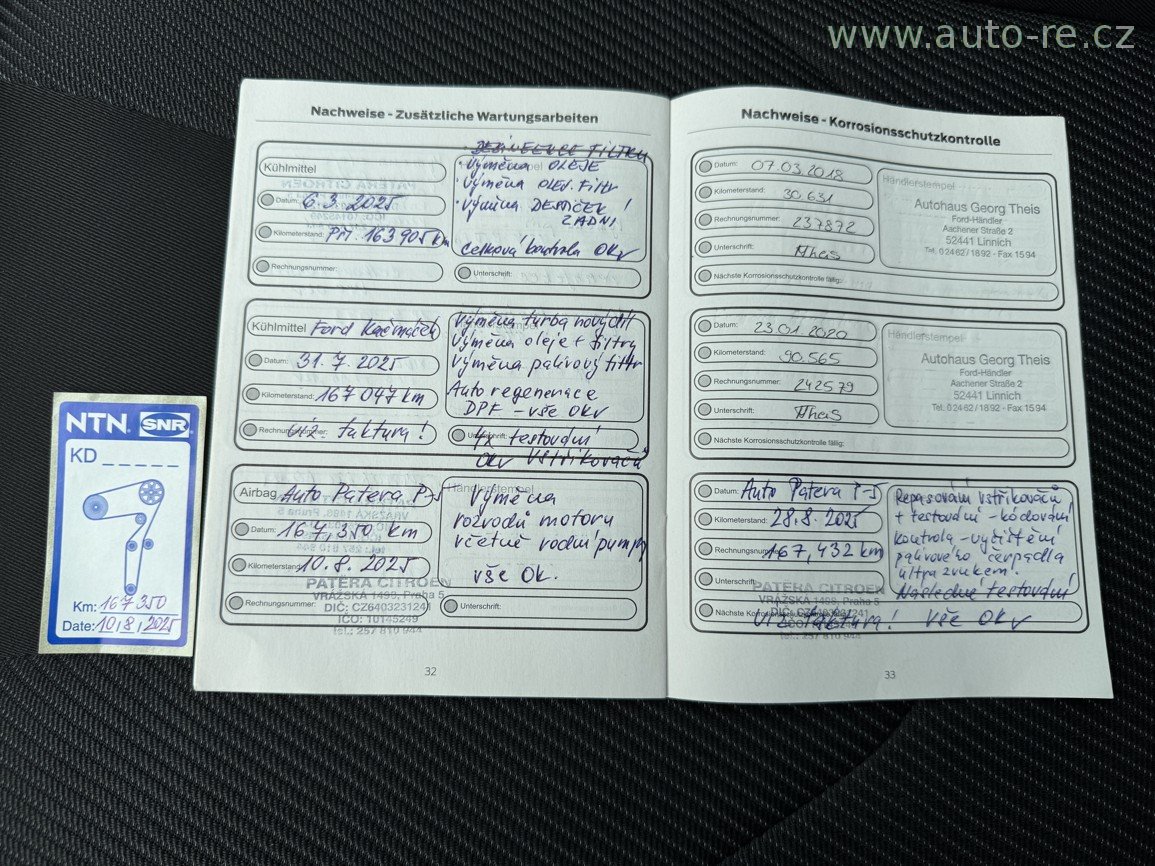 www.auto-re.cz
Nachweise - Zusätzliche Wartungsarbeiten
DEZINFEKCE FILTRU
Kühlmittel
• Výměna OLEJE
• Výměna OLEJ. Filtr
• Výměna DESTIČEK!
ZADNÍ
Celková kontrola OK
Datum: 6.3. 2025
Kilometerstand: Při 163 905 km
Rechnungsnummer:
Unterschrift:
Kühlmittel Ford
Výměna turba nový díl!
Výměna oleje + filtry
Výměna palivový filtr
Auto regenerace
DPF – vše OK
Datum: 31.7. 2025
Kilometerstand: 167 047 km
Rechnungsnummer: viz. faktura!
Unterschrift:
4x testování
OK vstřikovačů
Airbag Auto Patera P-5
Händlerstempel
Výměna
rozvodů motoru
včetně vodní pumpy
vše Ok.
Datum: 167,350 km
Kilometerstand: 10.8. 2025
PATERA CITROEN
VRÁŽSKÁ 1499, Praha 5
DIČ: CZ6403231241
IČO: 10145249
tel.: 257 810 944
Rechnungsnummer:
Unterschrift:
32
Nachweise - Korrosionsschutzkontrolle
Datum: 07.03.2018
Kilometerstand: 30.631
Rechnungsnummer: 237872
Unterschrift: Theis
Nächste Korrosionsschutzkontrolle fällig:
Händlerstempel
Autohaus Georg Theis
Ford-Händler
Aachener Straße 2
52441 Linnich
Tel. 0 24 62 / 18 92 · Fax 15 94
Datum: 23.01.2020
Kilometerstand: 90.565
Rechnungsnummer: 242579
Unterschrift: Theis
Nächste Korrosionsschutzkontrolle fällig:
Händlerstempel
Autohaus Georg Theis
Ford-Händler
Aachener Straße 2
52441 Linnich
Tel. 0 24 62 / 18 92 · Fax 15 94
Datum: Auto Patera P-5
Kilometerstand: 28.8. 2025
Rechnungsnummer: 167,432 km
Unterschrift:
Nächste Korrosionsschutzkontrolle fällig:
Repasování vstřikovačů
+ testování – kódování
kontrola – vyčištění
palivového čerpadla
ultrazvukem.
Následné testování
PATERA CITROEN
VRÁŽSKÁ 1499, Praha 5
DIČ: CZ6403231241
tel.: 257 810 944
viz faktura! vše OK
33
NTN. SNR
KD _ _ _ _ _
Km: 167 350
Date: 10,8,2025